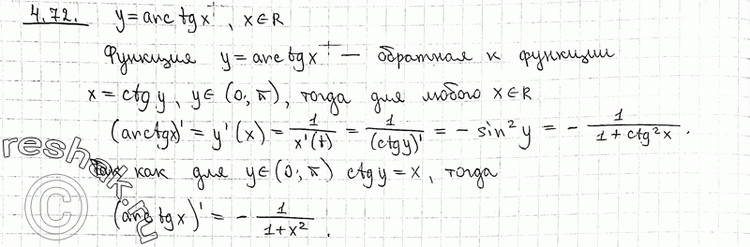 4.72. y = arcctgx, x ∈ R
Функция y = arcctgx — обратная к функции
x = ctg y, y ∈ (0; π), тогда для любого x ∈ R
(arcctgx)' = y'(x) = 1/x'(t) = 1/(ctgy)' = - sin²y = - 1/(1 + ctg²x).
Так как для y ∈ (0; π) ctgy = x, тогда
(arcctgx)' = - 1/(1+x²).
reshak.ru
©